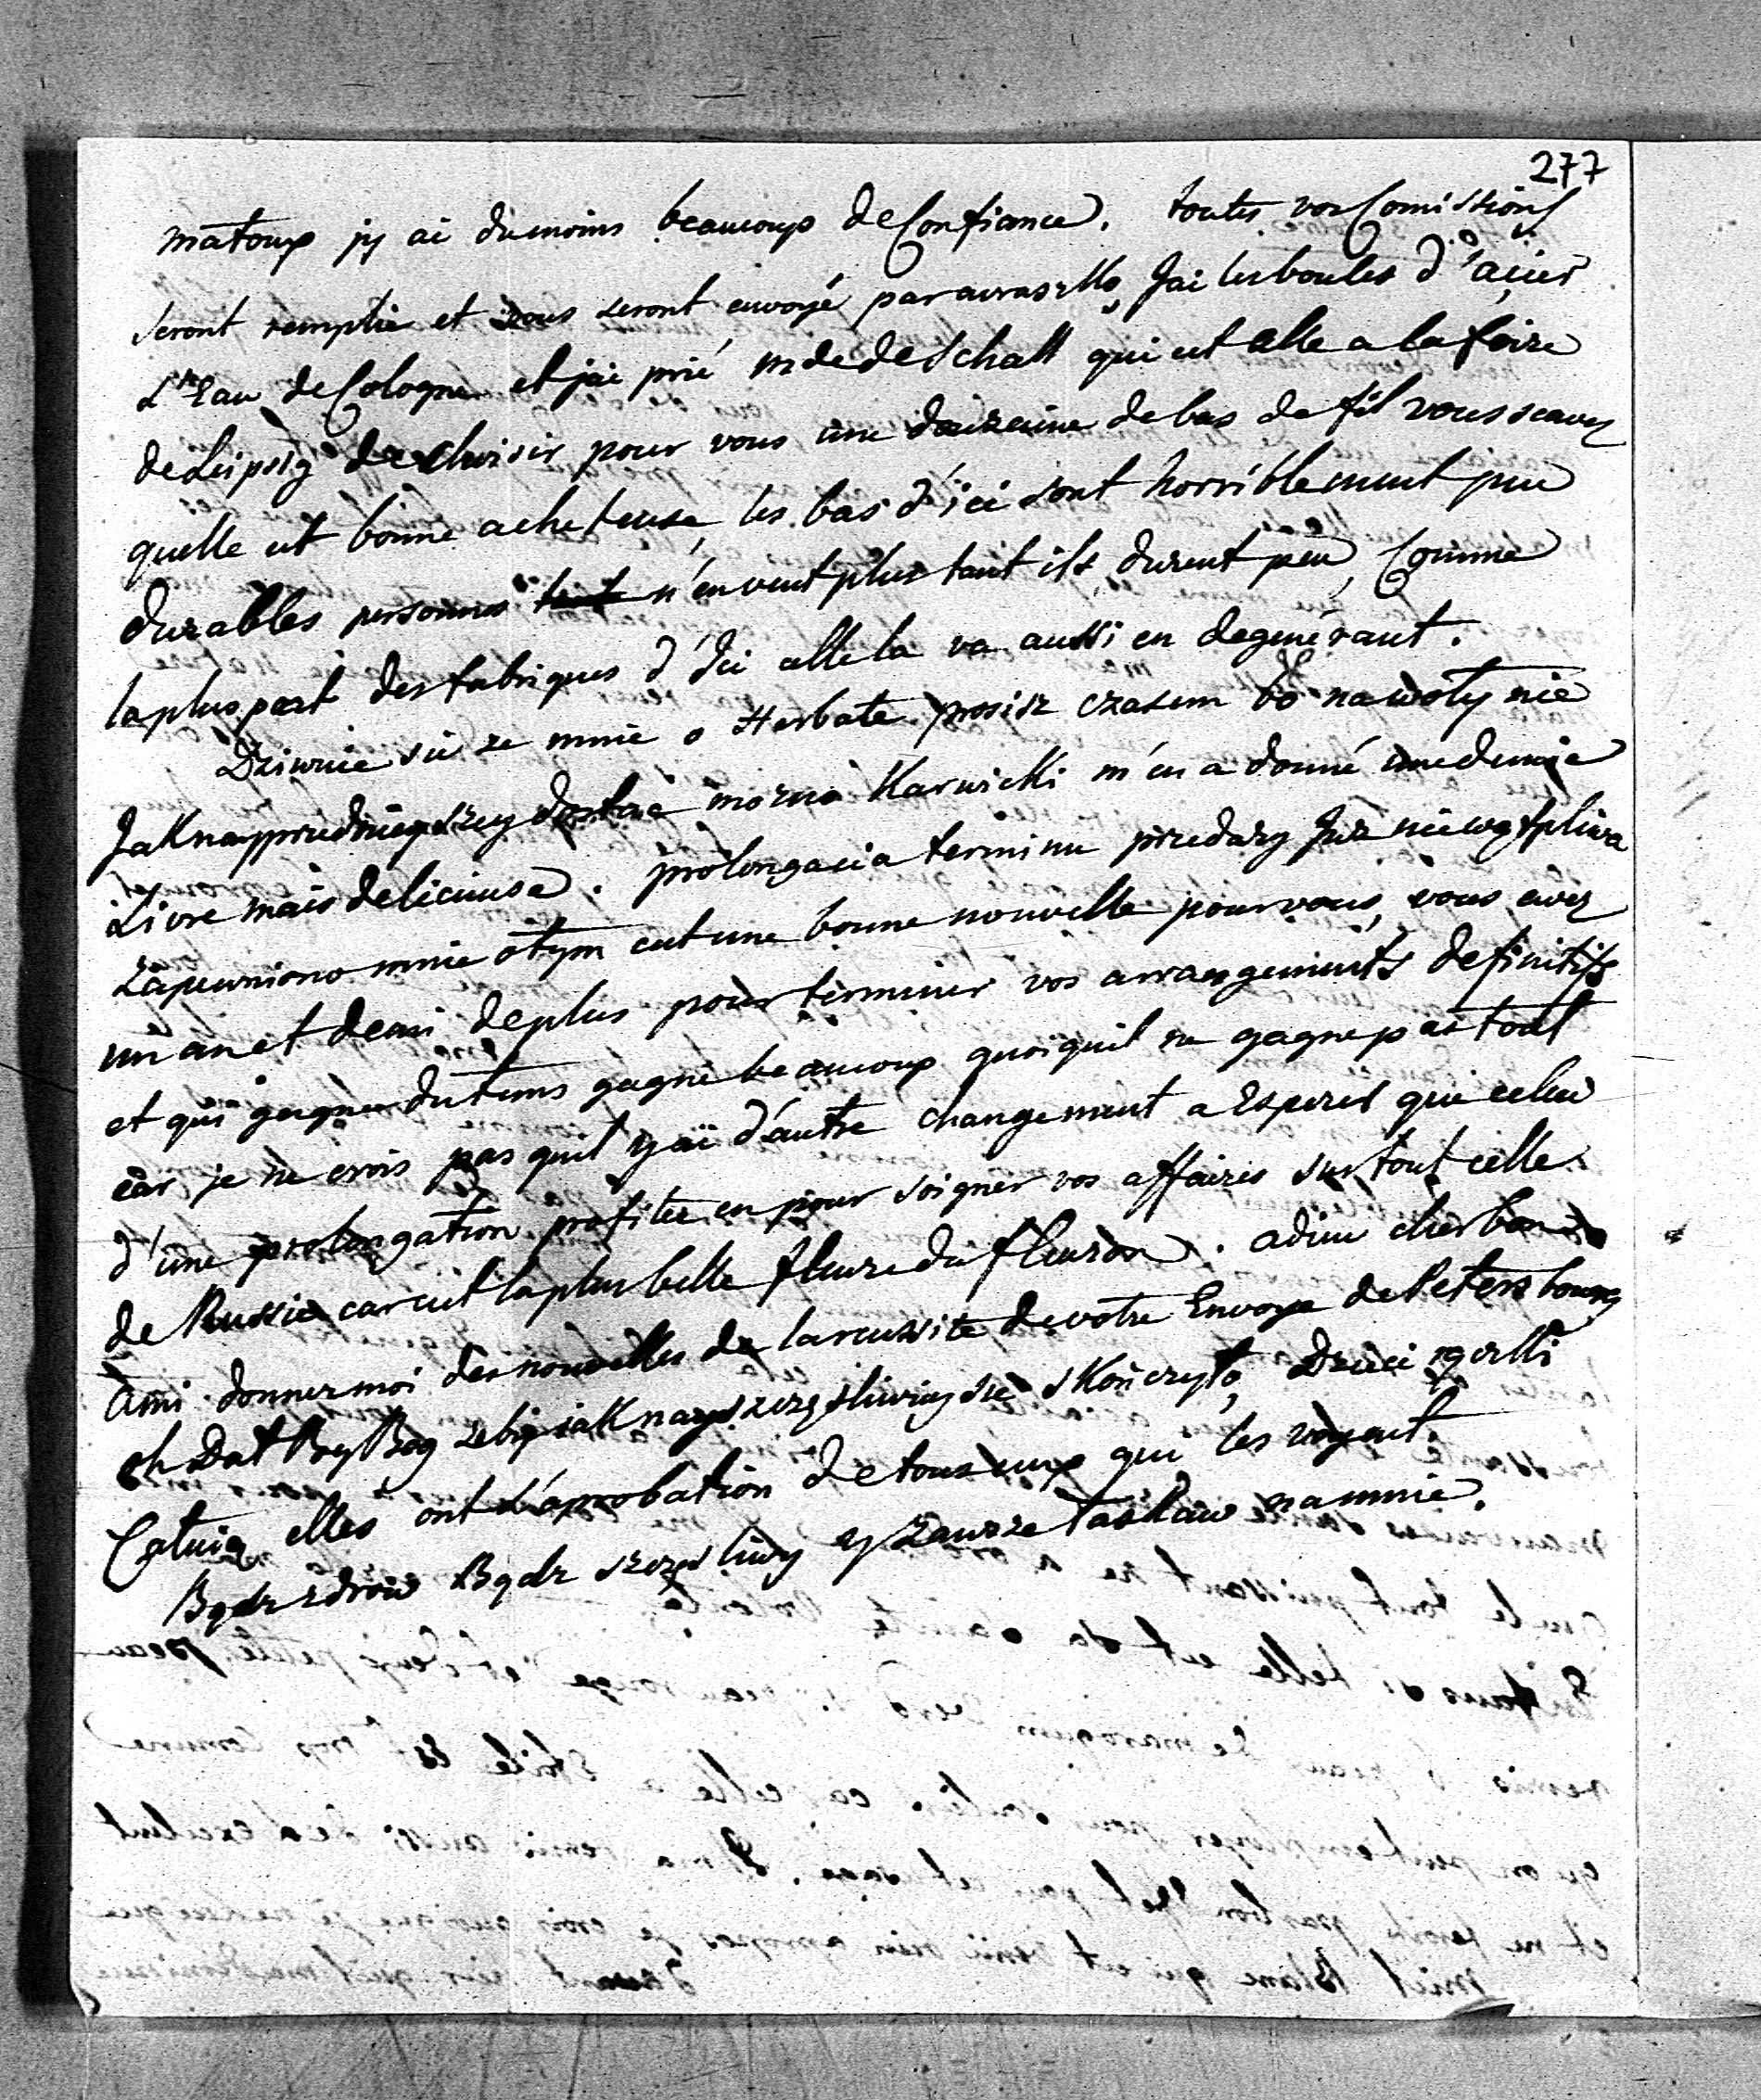 277
matoux jy ai dumoins beaucoup de Confiance. toutes vos Comissions
seront remplie et vous seront envoyé par Jai les boules d'acier
L'Eau de Cologne et jai prié mde de Schall qui est alle a la foire
de Leipsig de choisir pour vous une douzaine de bas de fil vous scavez
quelle est bonne acheteuse, les bas d'ici sont horriblement peu
durables personnes n'en veut plus tant ils durent peu, Comme
la plus part des fabriques d'Ici celle la va aussi en degenérant.
Dziwuie sie ze mnie o Herbate prosisz czasem bo nawoty nie
Jak nayprzednieyszey dostac mozna Karwicki m'en a donné une demie
Livre mais delicieuse. prolongacia terminu przedazy Juz niewątpliwa
Zapewniono mnie o tym cest une bonne nouvelle pour vous, vous avez
un an et demi de plus pour terminer vos arrangements definitifs
et qui gagne du tems gagne beaucoup quoiquil ne gagne pas tout
car je ne crois pas quil y ai d'autre changement a Esperer que celui
d'une prolongation profitez en pour soigner vos affaires surtout celle
de Russie car cest la plus belle fleure du fleuron. adieu cher bon
Ami donnez moi des nouvelles de la reussite de votre Envoye de Petersbourg
oh Dał By Bog zeby jak nayszczęsliwiey sie skończyło, Dzieci
elles ont L'aprobation de tous ceux qui les voyent.
Bądz zdrow Bądz szczęsliwy y zawsze łaskaw na mnie.